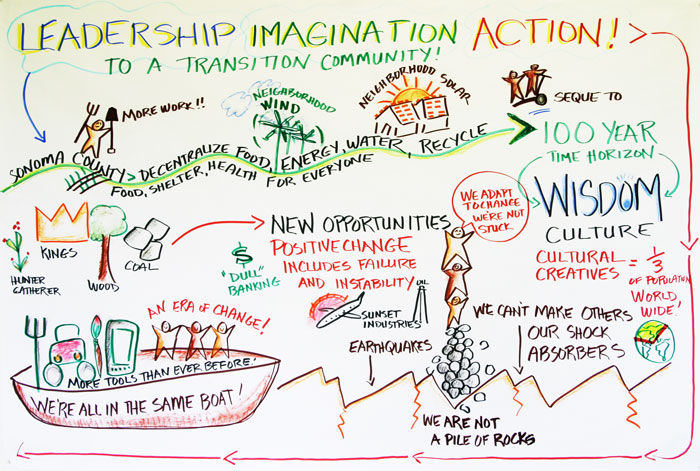 LEADERSHIP IMAGINATION ACTION!
TO A TRANSITION COMMUNITY!
MORE WORK!!
NEIGHBORHOOD
WIND
NEIGHBORHOOD SOLAR
SEQUE TO
100 YEAR
TIME HORIZON
SONOMA COUNTY > DECENTRALIZE FOOD, ENERGY, WATER, RECYCLE
FOOD, SHELTER, HEALTH FOR EVERYONE
WISDOM
CULTURE
CULTURAL
CREATIVES = 1/3
OF POPULATION
WORLD
WIDE!
KINGS
HUNTER
GATHERER
WOOD
COAL
NEW OPPORTUNITIES
POSITIVE CHANGE
INCLUDES FAILURE
AND INSTABILITY
$
"DULL"
BANKING
WE ADAPT
TO CHANGE
WE'RE NOT
STUCK
OIL
SUNSET
INDUSTRIES
EARTHQUAKES
WE CAN'T MAKE OTHERS
OUR SHOCK
ABSORBERS
WE ARE NOT
A PILE OF ROCKS
AN ERA OF CHANGE!
MORE TOOLS THAN EVER BEFORE.
WE'RE ALL IN THE SAME BOAT!